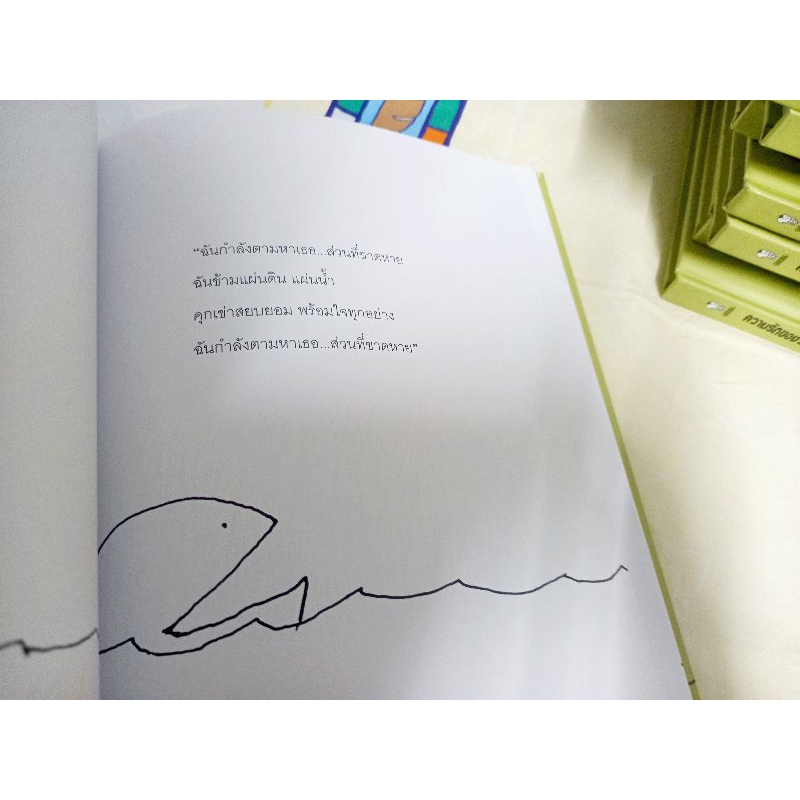 “ฉันกำลังตามหาเธอ...ส่วนที่ขาดหาย
ฉันข้ามแผ่นดิน แผ่นน้ำ
คุกเข่าสยบยอม พร้อมใจทุกอย่าง
ฉันกำลังตามหาเธอ...ส่วนที่ขาดหาย”